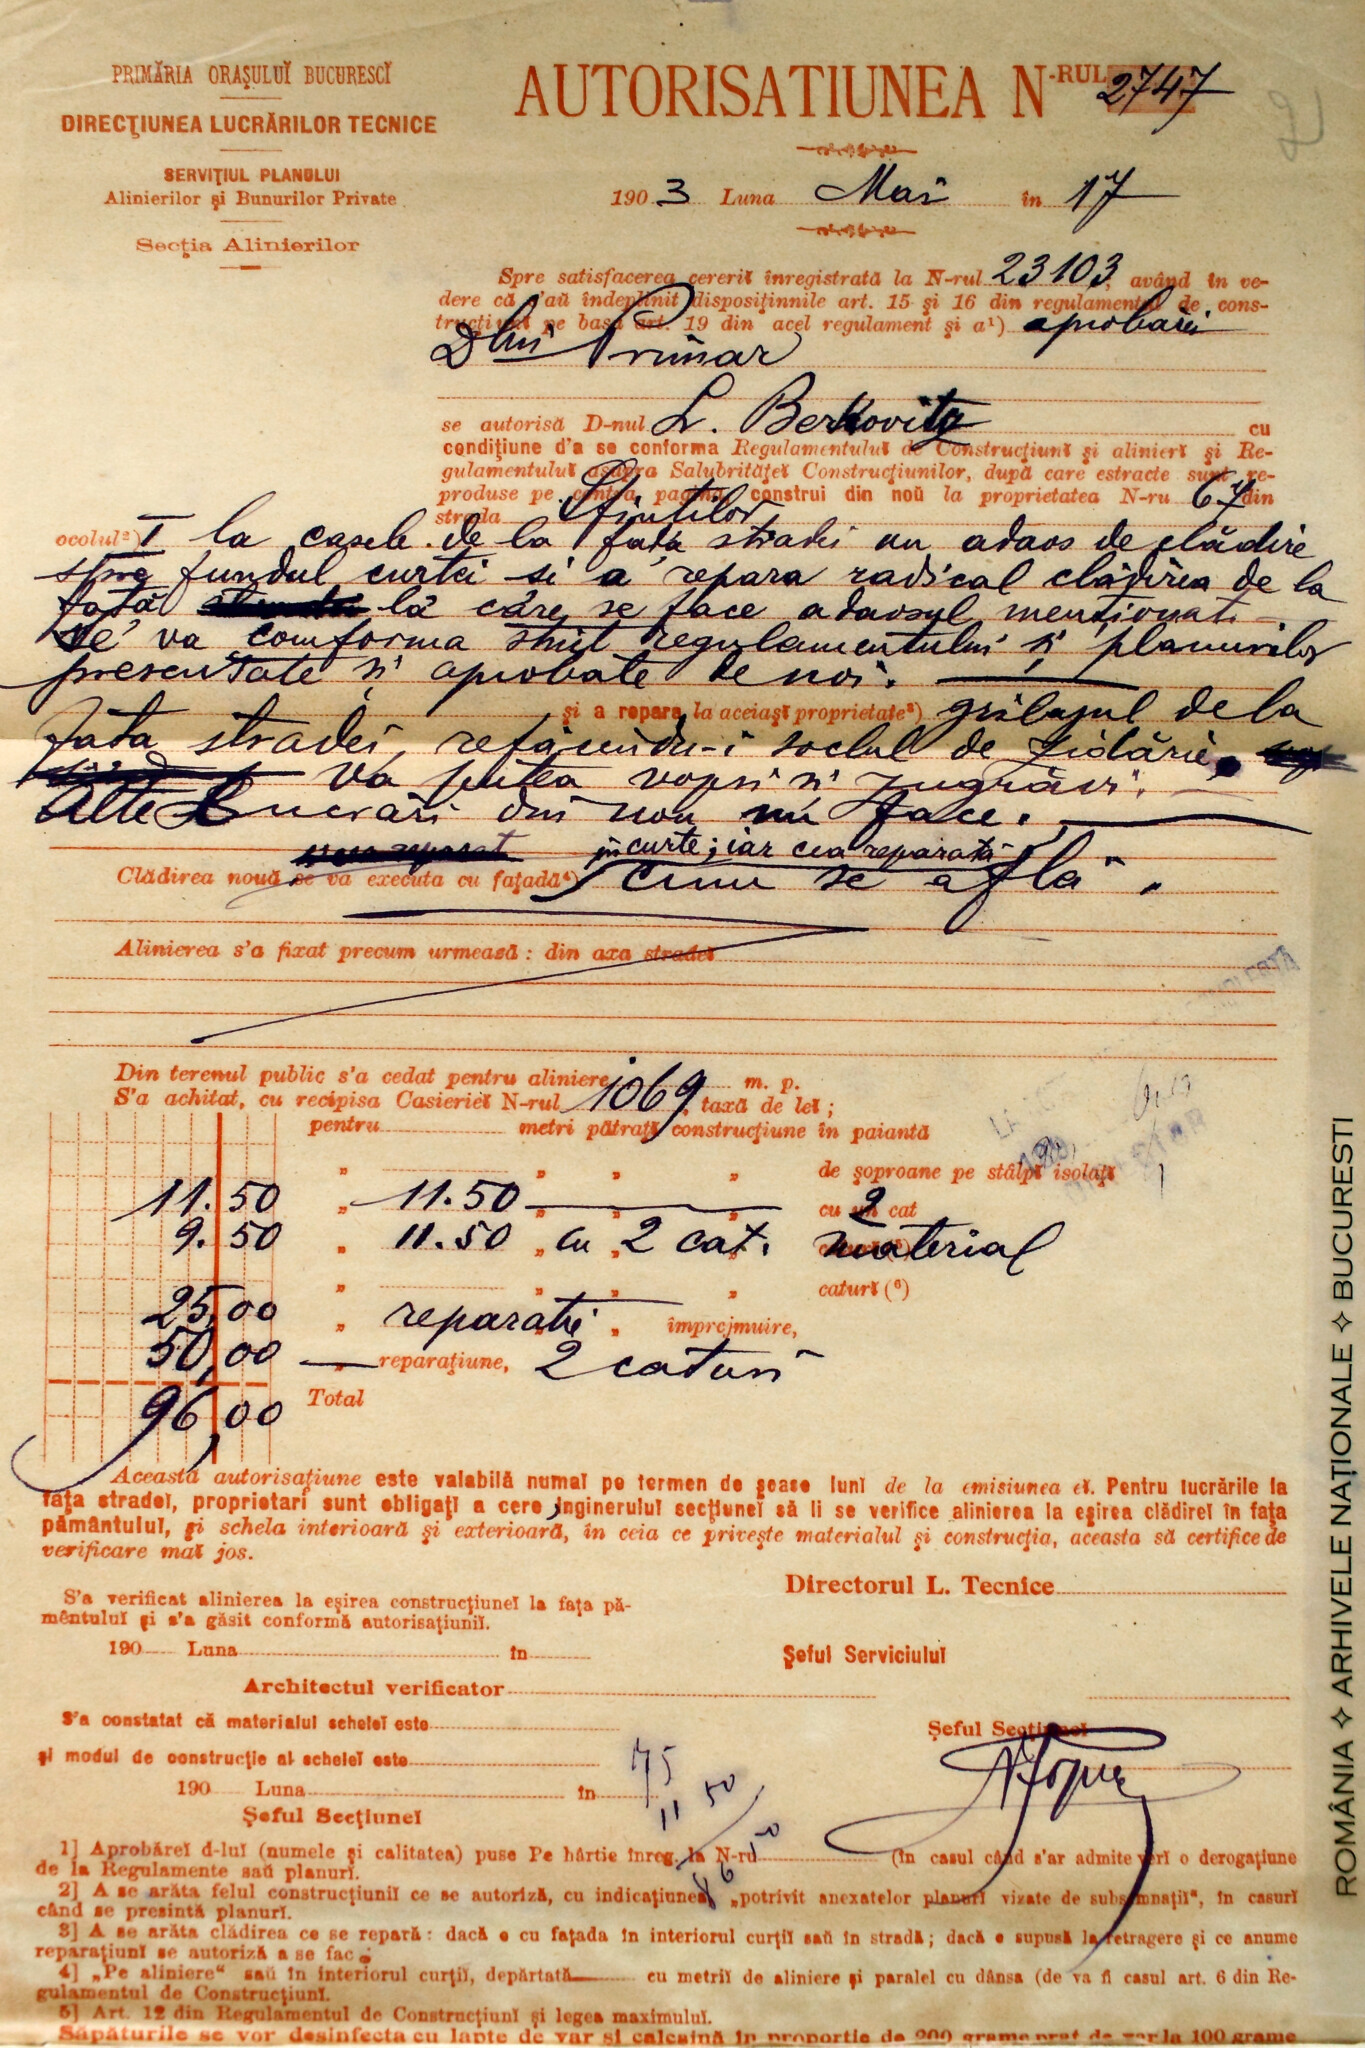 PRIMĂRIA ORAŞULUĬ BUCURESCĬ
DIRECŢIUNEA LUCRĂRILOR TECNICE
SERVIŢIUL PLANULUI
Alinierilor şi Bunurilor Private
Secţia Alinierilor
AUTORISATIUNEA N-RUL 2747
1903 Luna Mai în 17
Spre satisfacerea cereriĭ înregistrată la N-rul 23103, având în ve-
dere că s'aŭ îndeplinit dispoziţiunile art. 15 şi 16 din regulamentul de cons-
trucţiunĭ pe basa art. 19 din acel regulament şi a¹) aprobărei
Dlui Primar
se autorisă D-nul L. Berkovitz cu
condiţiune d'a se conforma Regulamentuluĭ de Construcţiunĭ şi alinierĭ şi Re-
gulamentuluĭ asupra Salubrităţeĭ Construcţiunilor, după care estracte sunt re-
produse pe contra pagină, construi din noŭ la proprietatea N-ru 67 din
strada Sfinţilor
ocolul²) I la casele de la faţa stradei un adaos de clădire
spre fundul curtei si a repara radical clădirea de la
faţă la care se face adaosul menţionat
Se va comforma strict regulamentului şi planurilor
presentate si aprobate de noi.
şi a repara la aceiaşĭ proprietate³) grilajul de la
faţa stradei, refăcându-i soclul de zidărie
va putea vopsi si zugrăvi.
Alte Lucrări din nou nu face.
în curte; iar cea reparată
Clădirea nouă se va executa cu faţadă⁴) cum se află.
Alinierea s'a fixat precum urmează : din axa stradeĭ
Din terenul public s'a cedat pentru aliniere m. p.
S'a achitat, cu recipisa Casierieĭ N-rul 1069, taxă de leĭ ;
pentru metri pătraţĭ construcţiune în paiantă
" " " " de şoproane pe stâlpĭ isolaţĭ
11.50 " 11.50 " " " cu un cat 2
9.50 " 11.50 " cu 2 cat. material
" " " " caturĭ (⁶)
25,00 " reparatie " " împrejmuire,
50,00 " reparaţiune, 2 caturi
96,00 Total
Aceastá autorisaţiune este valabilă numaĭ pe termen de şease lunĭ de la emisiunea eĭ. Pentru lucrările la
faţa stradeĭ, proprietarĭ sunt obligaţĭ a cere inginerului secţiuneĭ să li se verifice alinierea la eşirea clădireĭ în faţa
pământuluĭ, şi schela interioară şi exterioară, în ceia ce priveşte materialul şi construcţia, aceasta să certifice de
verificare maĭ jos.
Directorul L. Tecnice
S'a verificat alinierea la eşirea construcţiuneĭ la faţa pă-
mêntuluĭ şi s'a găsit conformă autorisaţiuniĭ.
190 Luna în
Şeful Serviciuluĭ
Architectul verificator
S'a constatat că materialul scheleĭ este
şi modul de construcţie al scheleĭ este
190 Luna în
Şeful Secţiuneĭ
Şeful Secţiuneĭ
75
11 50
86 50
1] Aprobăreĭ d-luĭ (numele şi calitatea) puse Pe hârtie înreg. la N-ru (în casul când s'ar admite verĭ o derogaţiune
de la Regulamente saŭ planurĭ.
2] A se arăta felul construcţiuniĭ ce se autoriză, cu indicaţiunea, „potrivit anexatelor planurĭ vizate de subsemnaţiĭ“, în casurĭ
când se presintă planurĭ.
3] A se arăta clădirea ce se repară : dacă e cu faţada în interiorul curţiĭ saŭ în stradă ; dacă e supusă la retragere şi ce anume
reparaţiunĭ se autoriză a se fac
4] „Pe aliniere“ saŭ în interiorul curţiĭ, depărtată cu metriĭ de aliniere şi paralel cu dânsa (de va fi casul art. 6 din Re-
gulamentul de Construcţiunĭ.
5] Art. 12 din Regulamentul de Construcţiunĭ şi legea maximuluĭ.
Săpăturile se vor desinfecta cu lapte de var şi calcaină în proporţie de 200 grame praf de var la 100 grame
ROMÂNIA ✧ ARHIVELE NAŢIONALE ✧ BUCUREŞTI